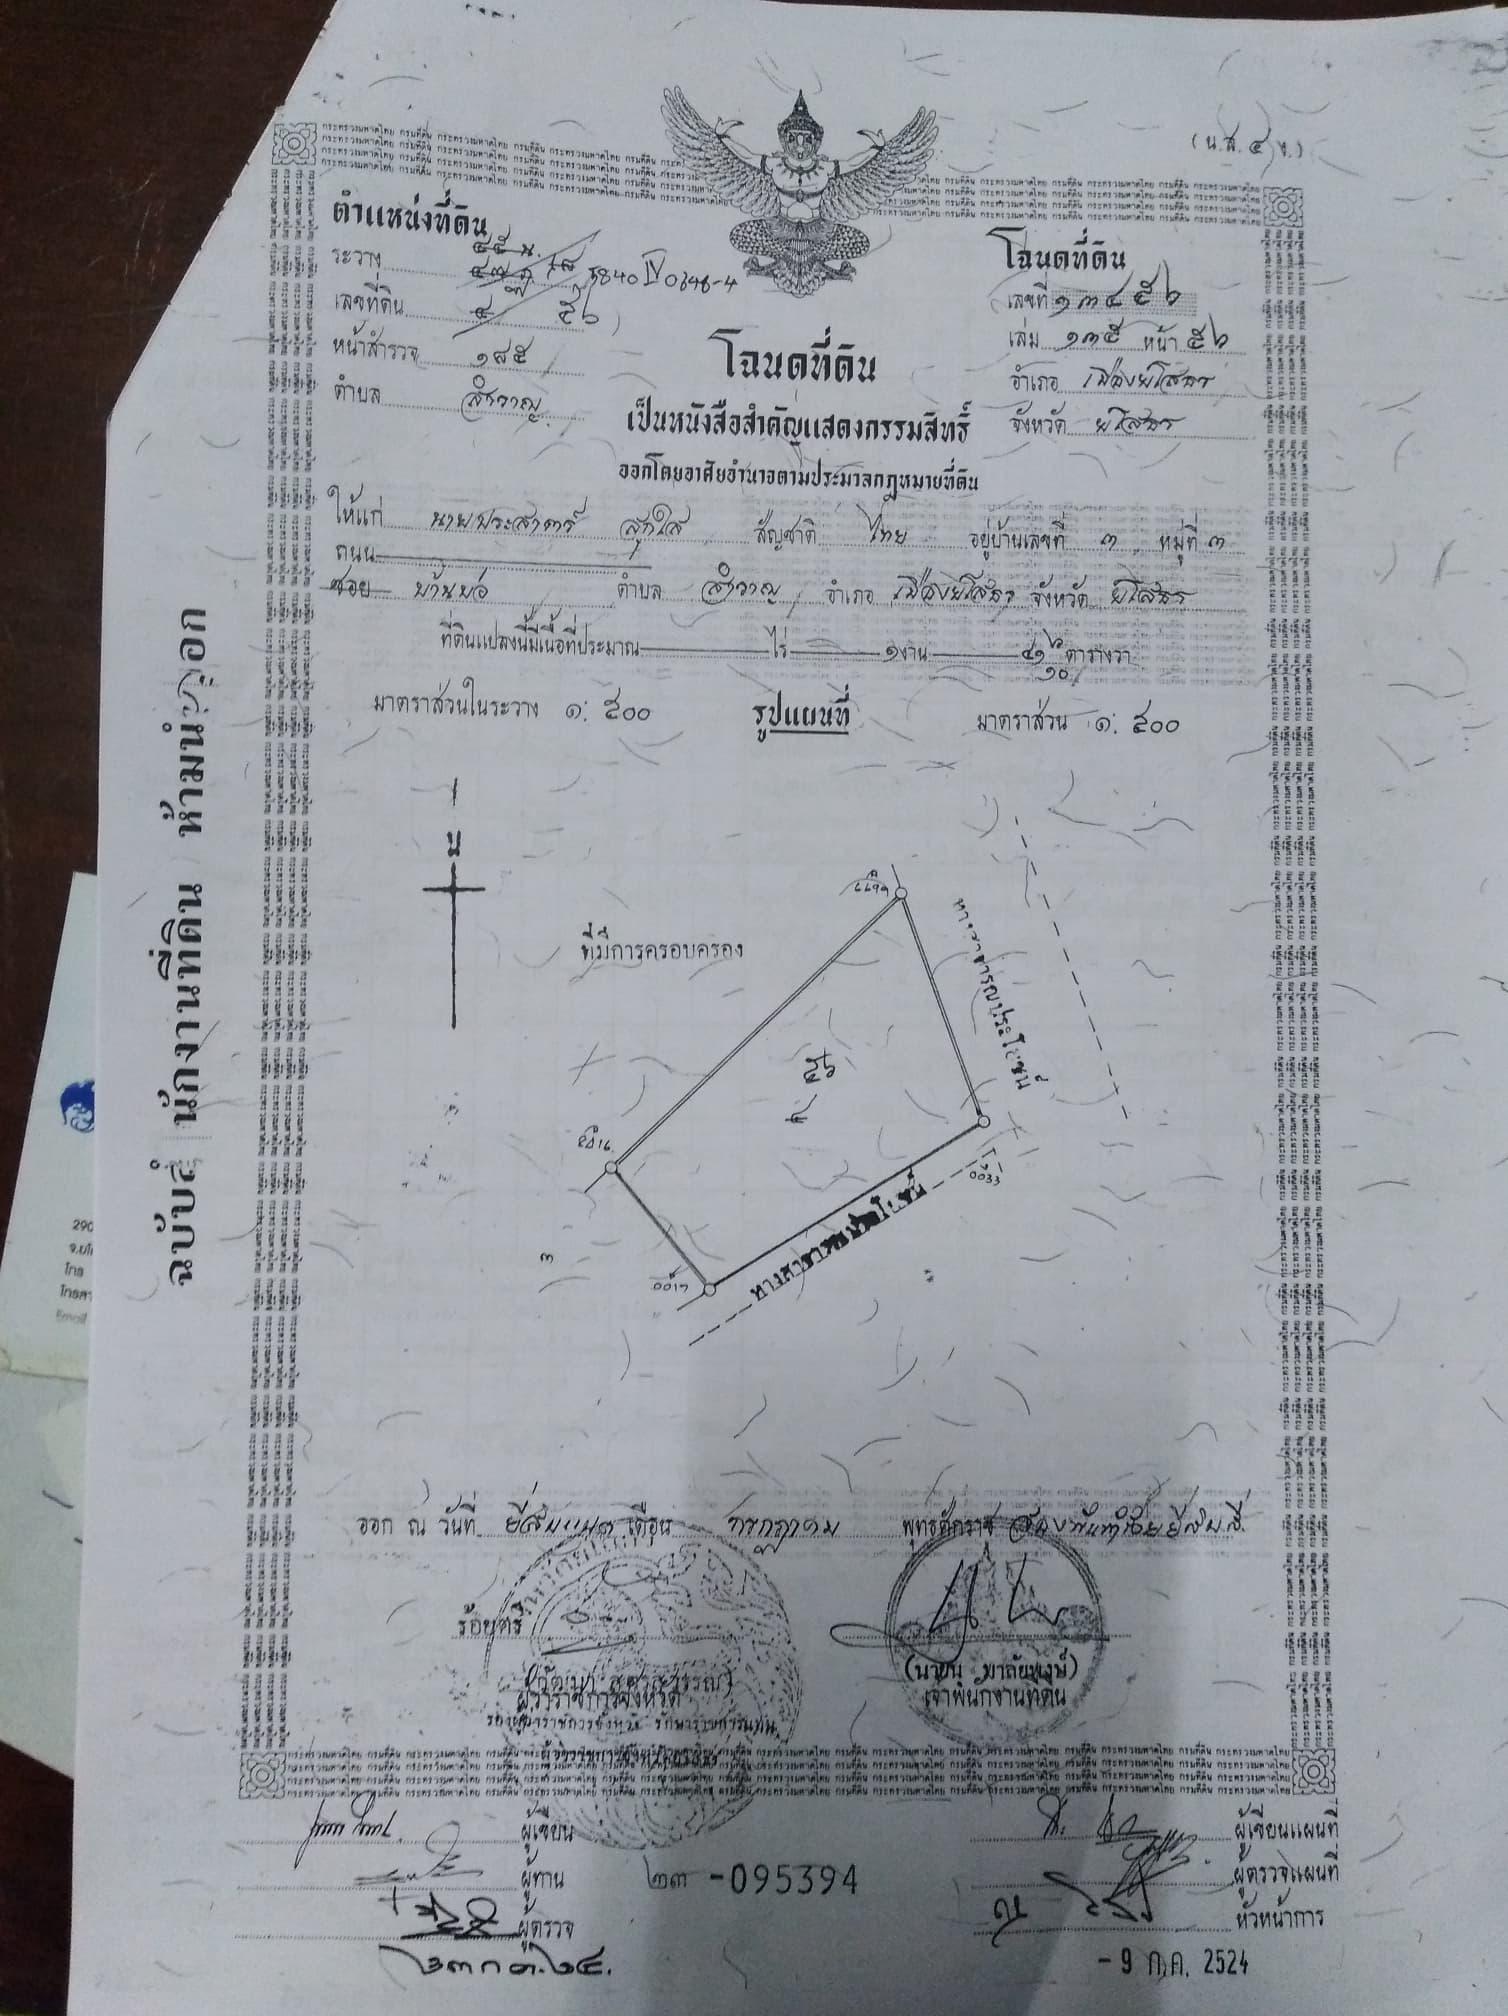 (น.ส. ๔ ง.)
ตำแหน่งที่ดิน
ระวาง 5840 IV 0646-4
เลขที่ดิน ๔ ๕๖
หน้าสำรวจ ๑๘๕
ตำบล สำราญ
โฉนดที่ดิน
เลขที่ ๑๓๔๕๖
เล่ม ๑๓๕ หน้า ๕๖
อำเภอ เมืองยโสธร
จังหวัด ยโสธร
โฉนดที่ดิน
เป็นหนังสือสำคัญแสดงกรรมสิทธิ์
ออกโดยอาศัยอำนาจตามประมวลกฎหมายที่ดิน
ให้แก่ นายประสาตร์ สุกใส สัญชาติ ไทย อยู่บ้านเลขที่ ๓ หมู่ที่ ๓
ถนน
ซอย บ้านบ่อ ตำบล สำราญ อำเภอ เมืองยโสธร จังหวัด ยโสธร
ที่ดินแปลงนี้มีเนื้อที่ประมาณ ไร่ ๑ งาน ๔๑ ๖/๑๐ ตารางวา
มาตราส่วนในระวาง ๑: ๕๐๐ รูปแผนที่ มาตราส่วน ๑: ๕๐๐
น
ที่มีการครอบครอง
ทางสาธารณประโยชน์
๕๖
๔
๓
ทางสาธารณประโยชน์
ฉบับสำนักงานที่ดิน ห้ามนำออก
ออก ณ วันที่ ยี่สิบแปด เดือน กรกฎาคม พุทธศักราช สองพันห้าร้อยยี่สิบสี่
ร้อยตรี
ผู้ว่าราชการจังหวัด
รองผู้ว่าราชการจังหวัด รักษาราชการแทน
ผู้ว่าราชการจังหวัดยโสธร
เจ้าพนักงานที่ดิน
ผู้เขียน
ผู้ทาน
ผู้ตรวจ
๒๓ ก.ค. ๒๔.
๒๓ -095394
ผู้เขียนแผนที่
ผู้ตรวจแผนที่
หัวหน้าการ
- 9 ก.ค. 2524
290
จ.ยโ
โทร
โทรสา
Email